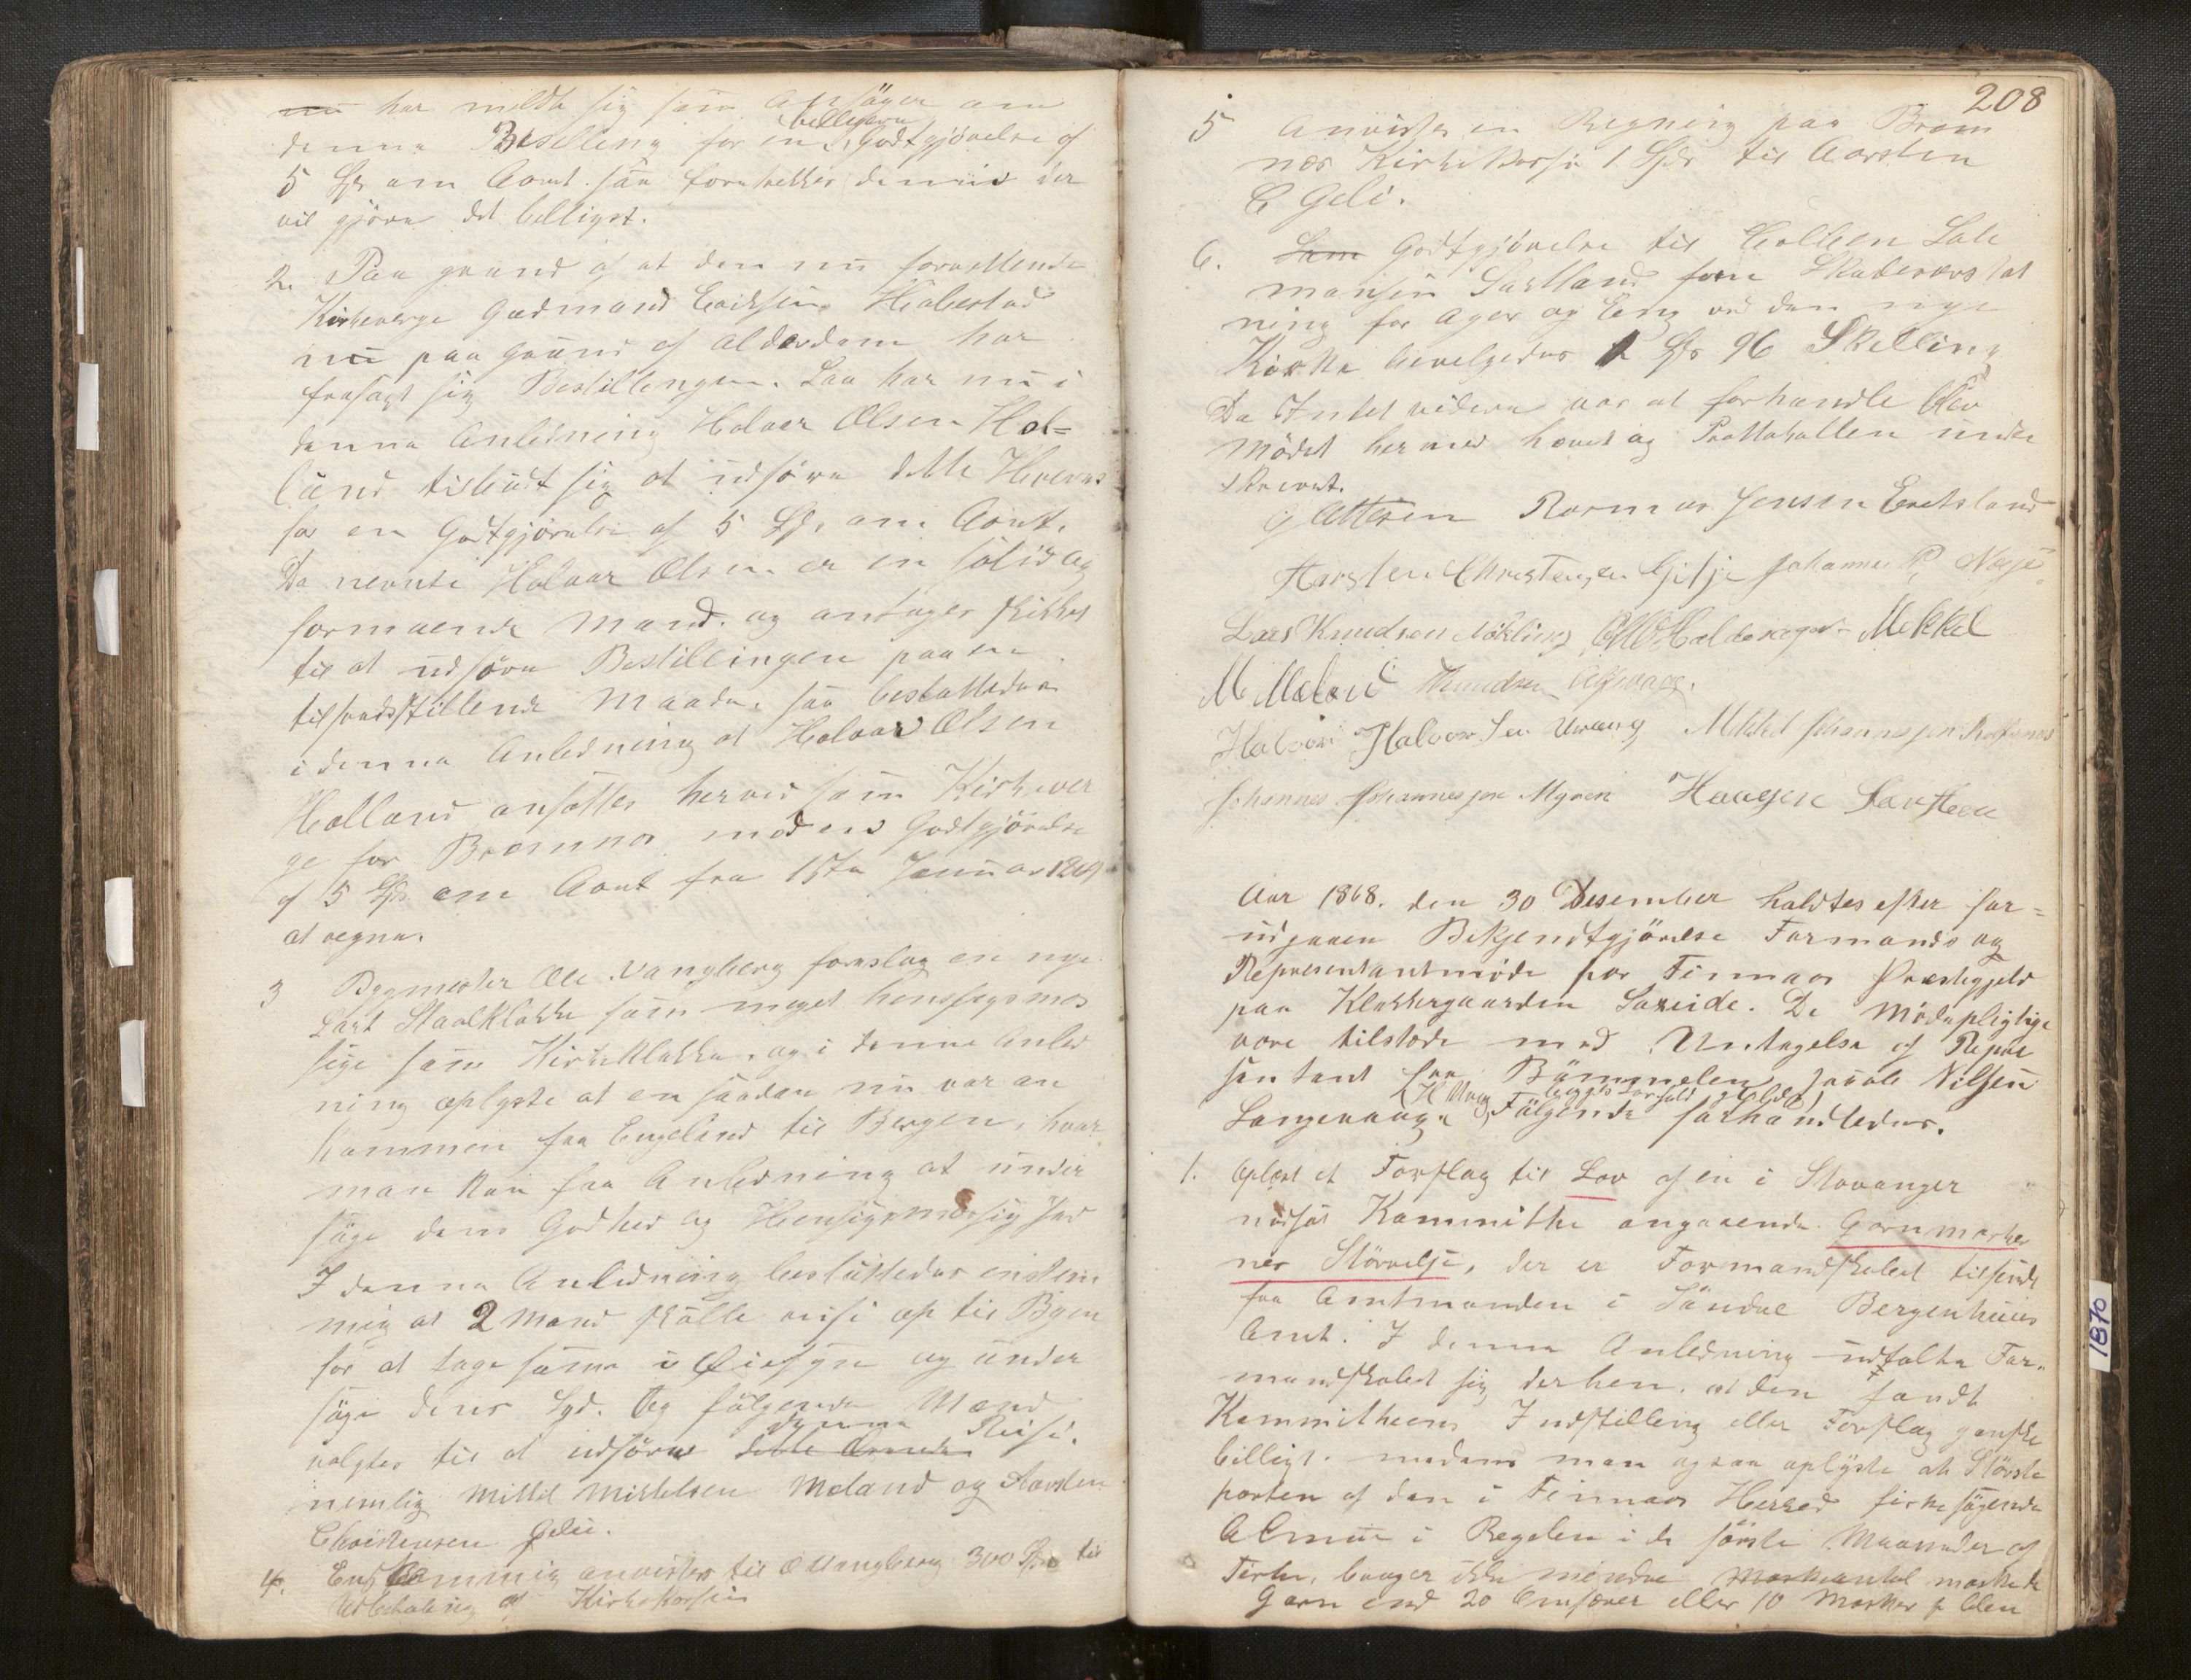 nu har meldt sig som Ansøger om
denne Bestilling for en billigere Godtgjørelse af
5 Spd om Aaret saa foretrækkes den der
vil gjøre det billigst.
2. Paa grund af at den nu forrettende
Kirkeverge Gudmand Eriksen Habestad
nu paa grund af Alderdom har
frasagt sig Bestillingen. Saa har nu i
denne Anledning Halvar Olsen Hol=
land tilbudt sig at udføre dette Hverv
for en Godtgjørelse af 5 Spd. om Aaret.
Da nevnte Halvar Olsen er en solid og
formaaende Mand. og antages skikket
til at udføre Bestillingen paa en
tilfredsstillende Maade, saa besluttedes
i denne Anledning at Halvar Olsen
Holland ansættes herved som Kirkever
ge for Bremnes mod en Godtgjørelse
af 5 Spd om Aaret fra 1ste Januar 1869
at regne.
3 Bygmester Ole Vangberg foreslog en nye
Sart Staalklokke som meget hensigsmæs
sige som Kirkeklokke, og i denne Anled
ning oplyste at en saadan nu var an
kommen fra Engeland til Bergen, hvor
man kan faa Anledning at under
søge dens Godhed og Hensigsmæssighed
I denne Anledning besluttedes enstem
mig at 2 Mand skulle reise op til Byen
for at tage samme i Øiesyn og under
søge dens Lyd. Og følgende Mænd
valgtes til at udføre dette Ærende denne Reise.
nemlig Mikkel Mikkelsen Meland og Aarsten
Christensen Gilie.
4. Enstemmig anvistes til O Vangberg 300 Spd til
Udbetaling af Kirkekassen
208
5 Anvistes en Regning paa Brem
nes Kirkekasse 1 Spd til Aarsten
C Gili.
6. Som Godtgjørelse til Colben Sale
monsen Sætland som Skadeerstat
ning for Ager og Eng ved den nye
Kirke bevilgedes 1 Spd 96 Skelling
Da Intet videre var at forhandle blev
Mødet hermed hævet og Prottokollen under
skrevet.
G Ottesen Rasmus Jensen Eretsland
Aarsten Christensen Gilje Johannes P. Næse
Lars Knudsen Nøkling Mikkel
M Meland Knudsen
Halvor Halvorsen Uvaag Mikkel Johannessen
Johannes Johannessen Myren Haagen
Aar 1868. den 30 Desember holdtes efter for=
udgaaen Bekjendtgjørelse Formands og
Representantmøde for Finnaas Præstegjeld
paa Klokkergaarden Sæleide. De Mødepligtige
vare tilstede med Untagelse af Repre
sentant fra Bømmelen Jacob Nilsen
Langevaage (H Uvaag lovligt forfald meldte) Følgende forhandledes.
1. Oplæst et Forslag til Lov af en i Stavanger
nedsat Kommitthe angaaende Garnmasker
nes Størrelse, der er Formandskabet tilsendt
fra Amtmanden i Søndre Bergenhuus
Amt. I denne Anledning udtalte For=
mandskabet sig derhen, at den fandt
Kommitheens Indstilling eller Forslag ganske
billigt. medens man ogsaa oplyste at Største
parten af den i Finnaas Herred fiskesøgende
Almue i Regelen i de første Maaneder af
Fisket, bruger ikke mindre Maskeantal maskede
Garn end 20 Omfarer eller 10 Masker p Alen
1870